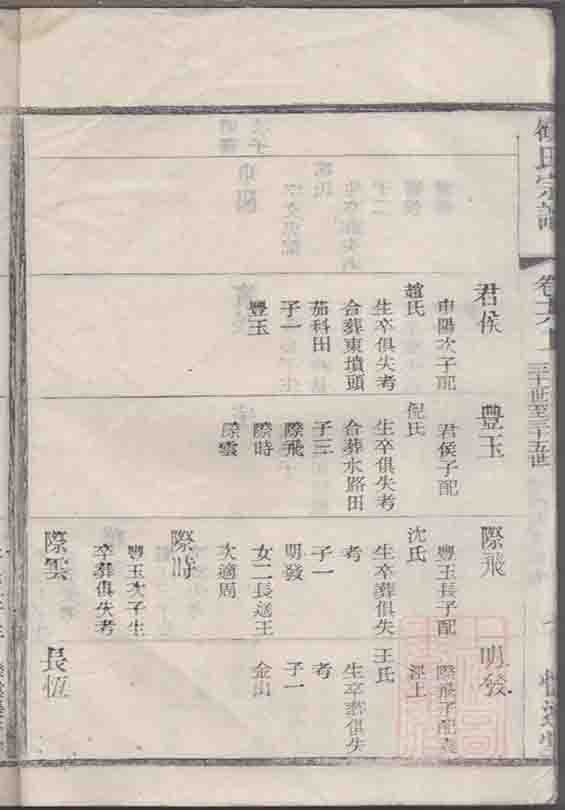 氏宗譜
三十世至三十五世
君侯
申陽次子配
趙氏
生卒俱失考
合葬東墳頭
茄科田
子一
豐玉
豐玉
君侯子配
倪氏
生卒俱失考
合葬水路田
子三
際飛
際時
際雲
際飛
豐玉長子配
沈氏
生卒葬俱失
考
子一
明發
女二長適王
次適周
際時
豐玉次子生
卒葬俱失考
際雲
明發
際飛子配
涇上
王氏
生卒葬俱失
考
子一
金出
長恆